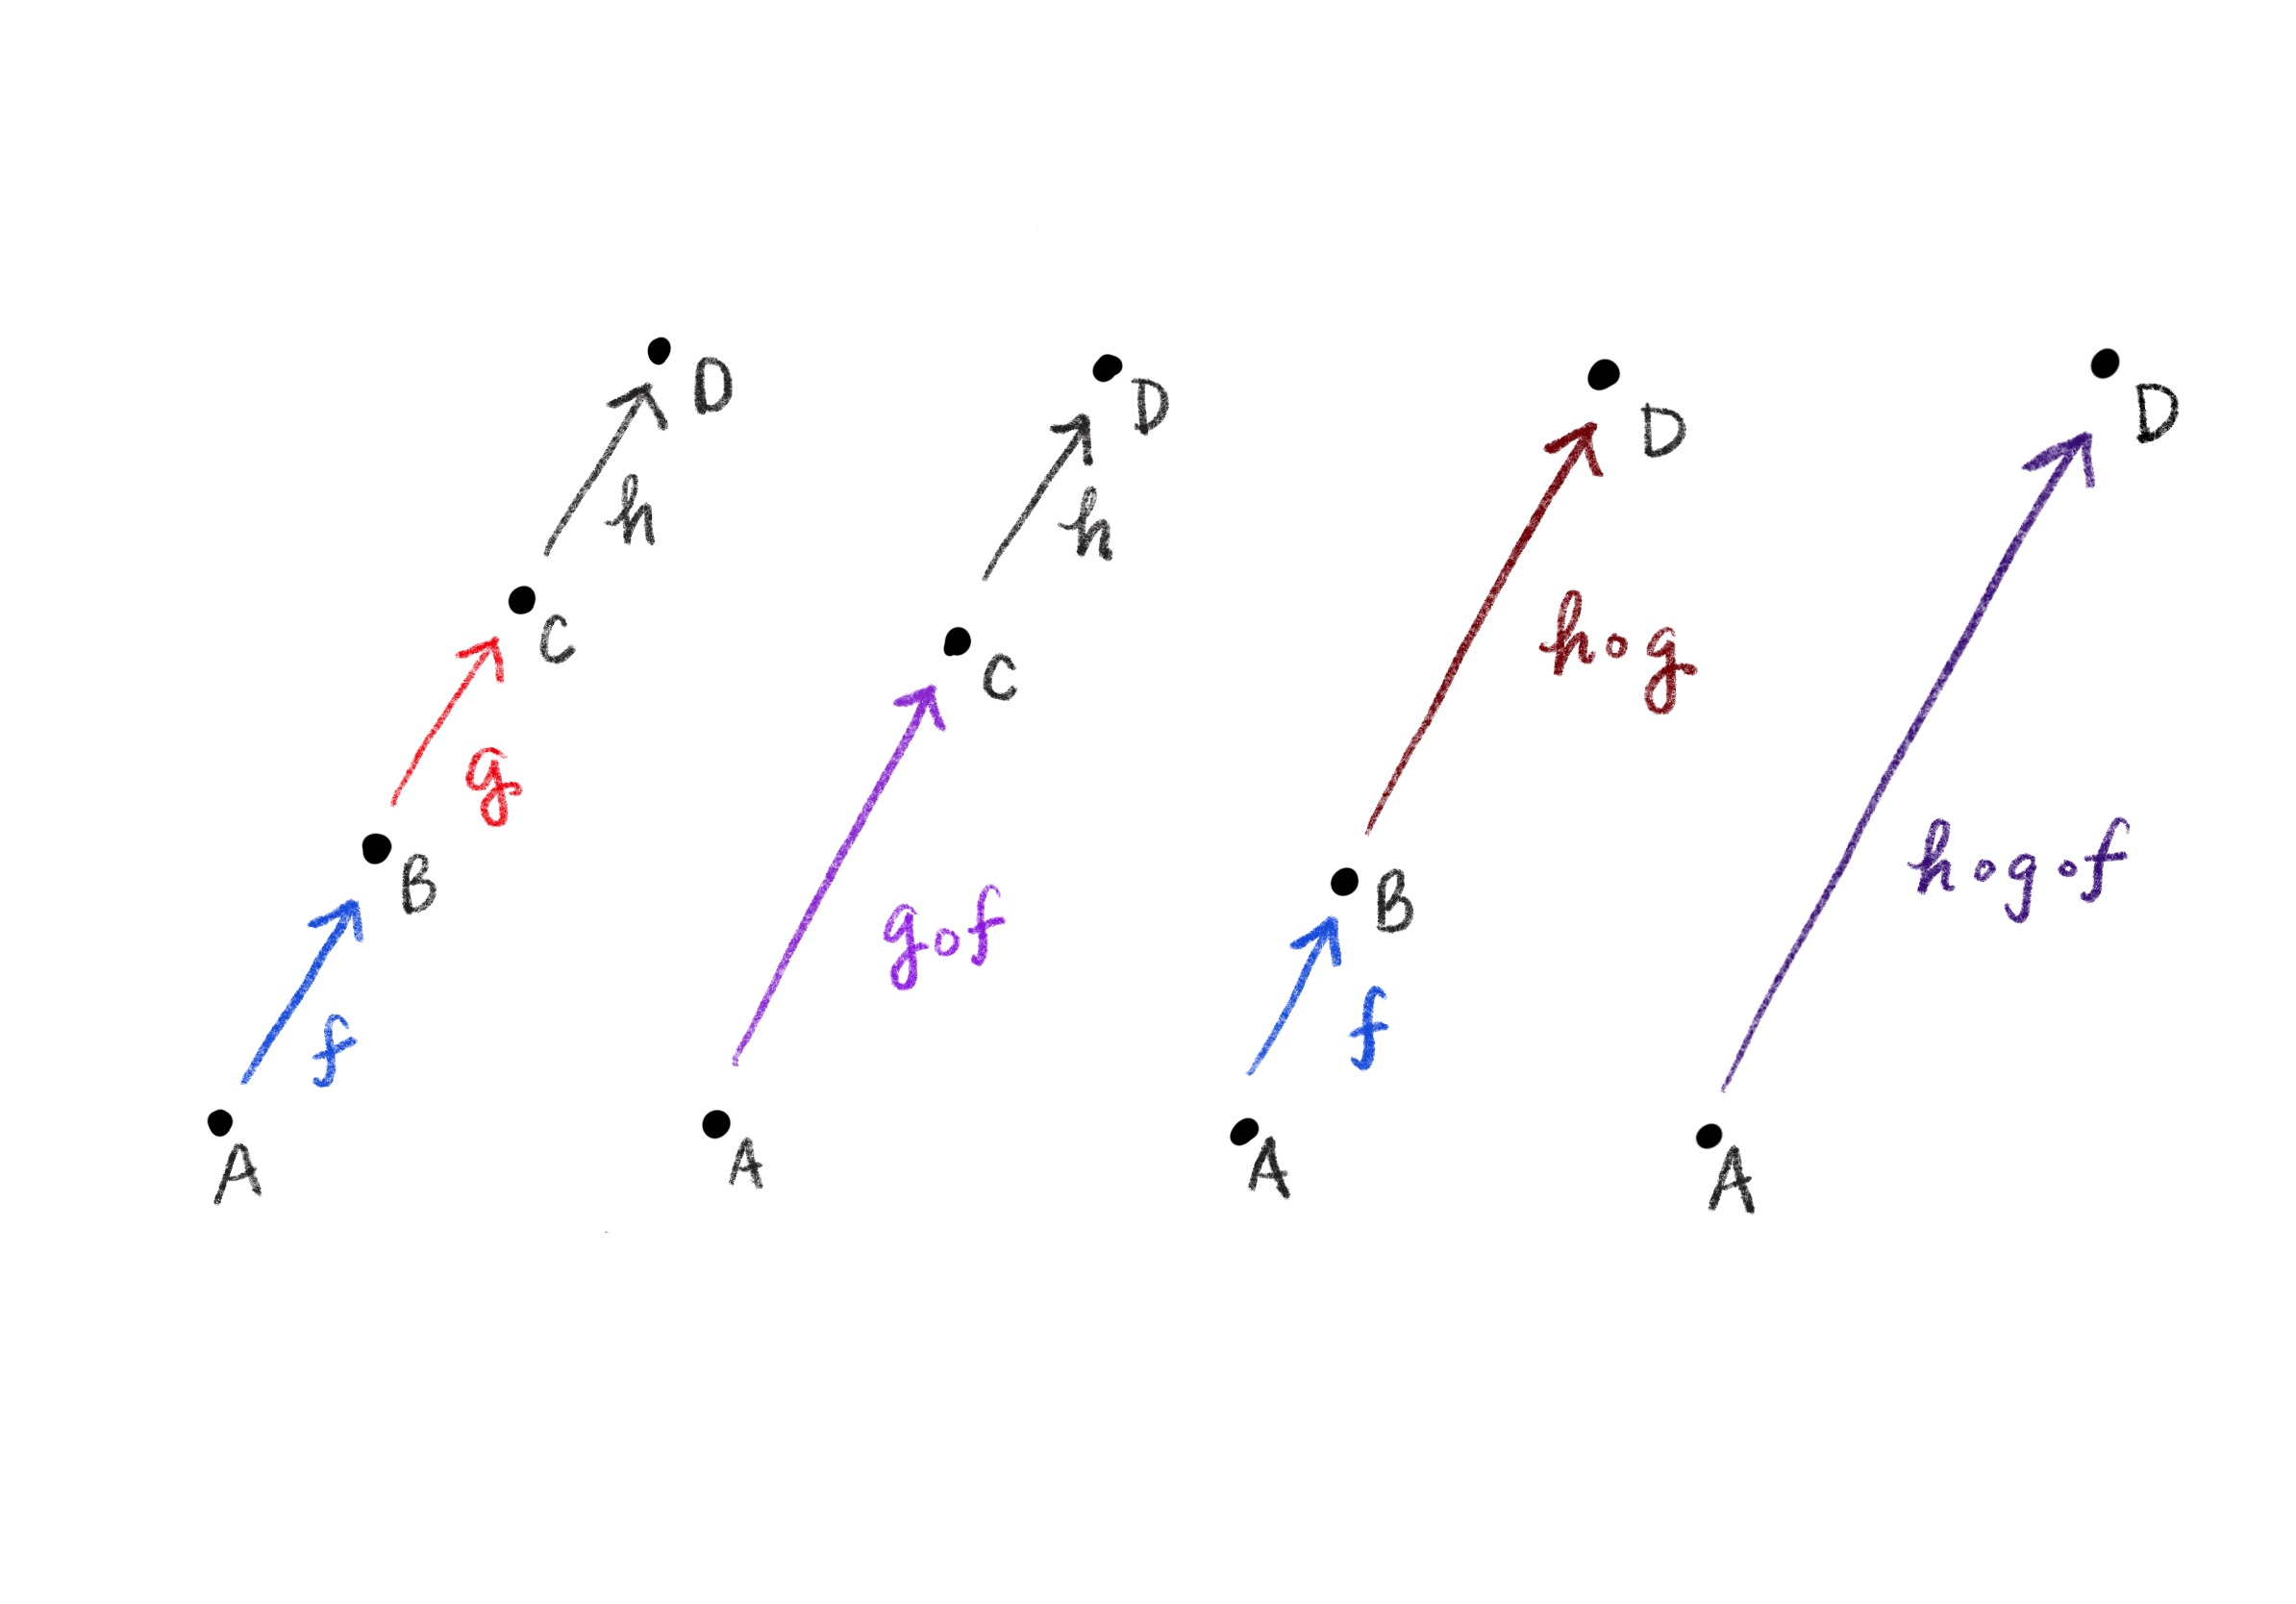 D
h
C
g
B
f
A
D
h
C
g∘f
A
D
h∘g
B
f
A
D
h∘g∘f
A